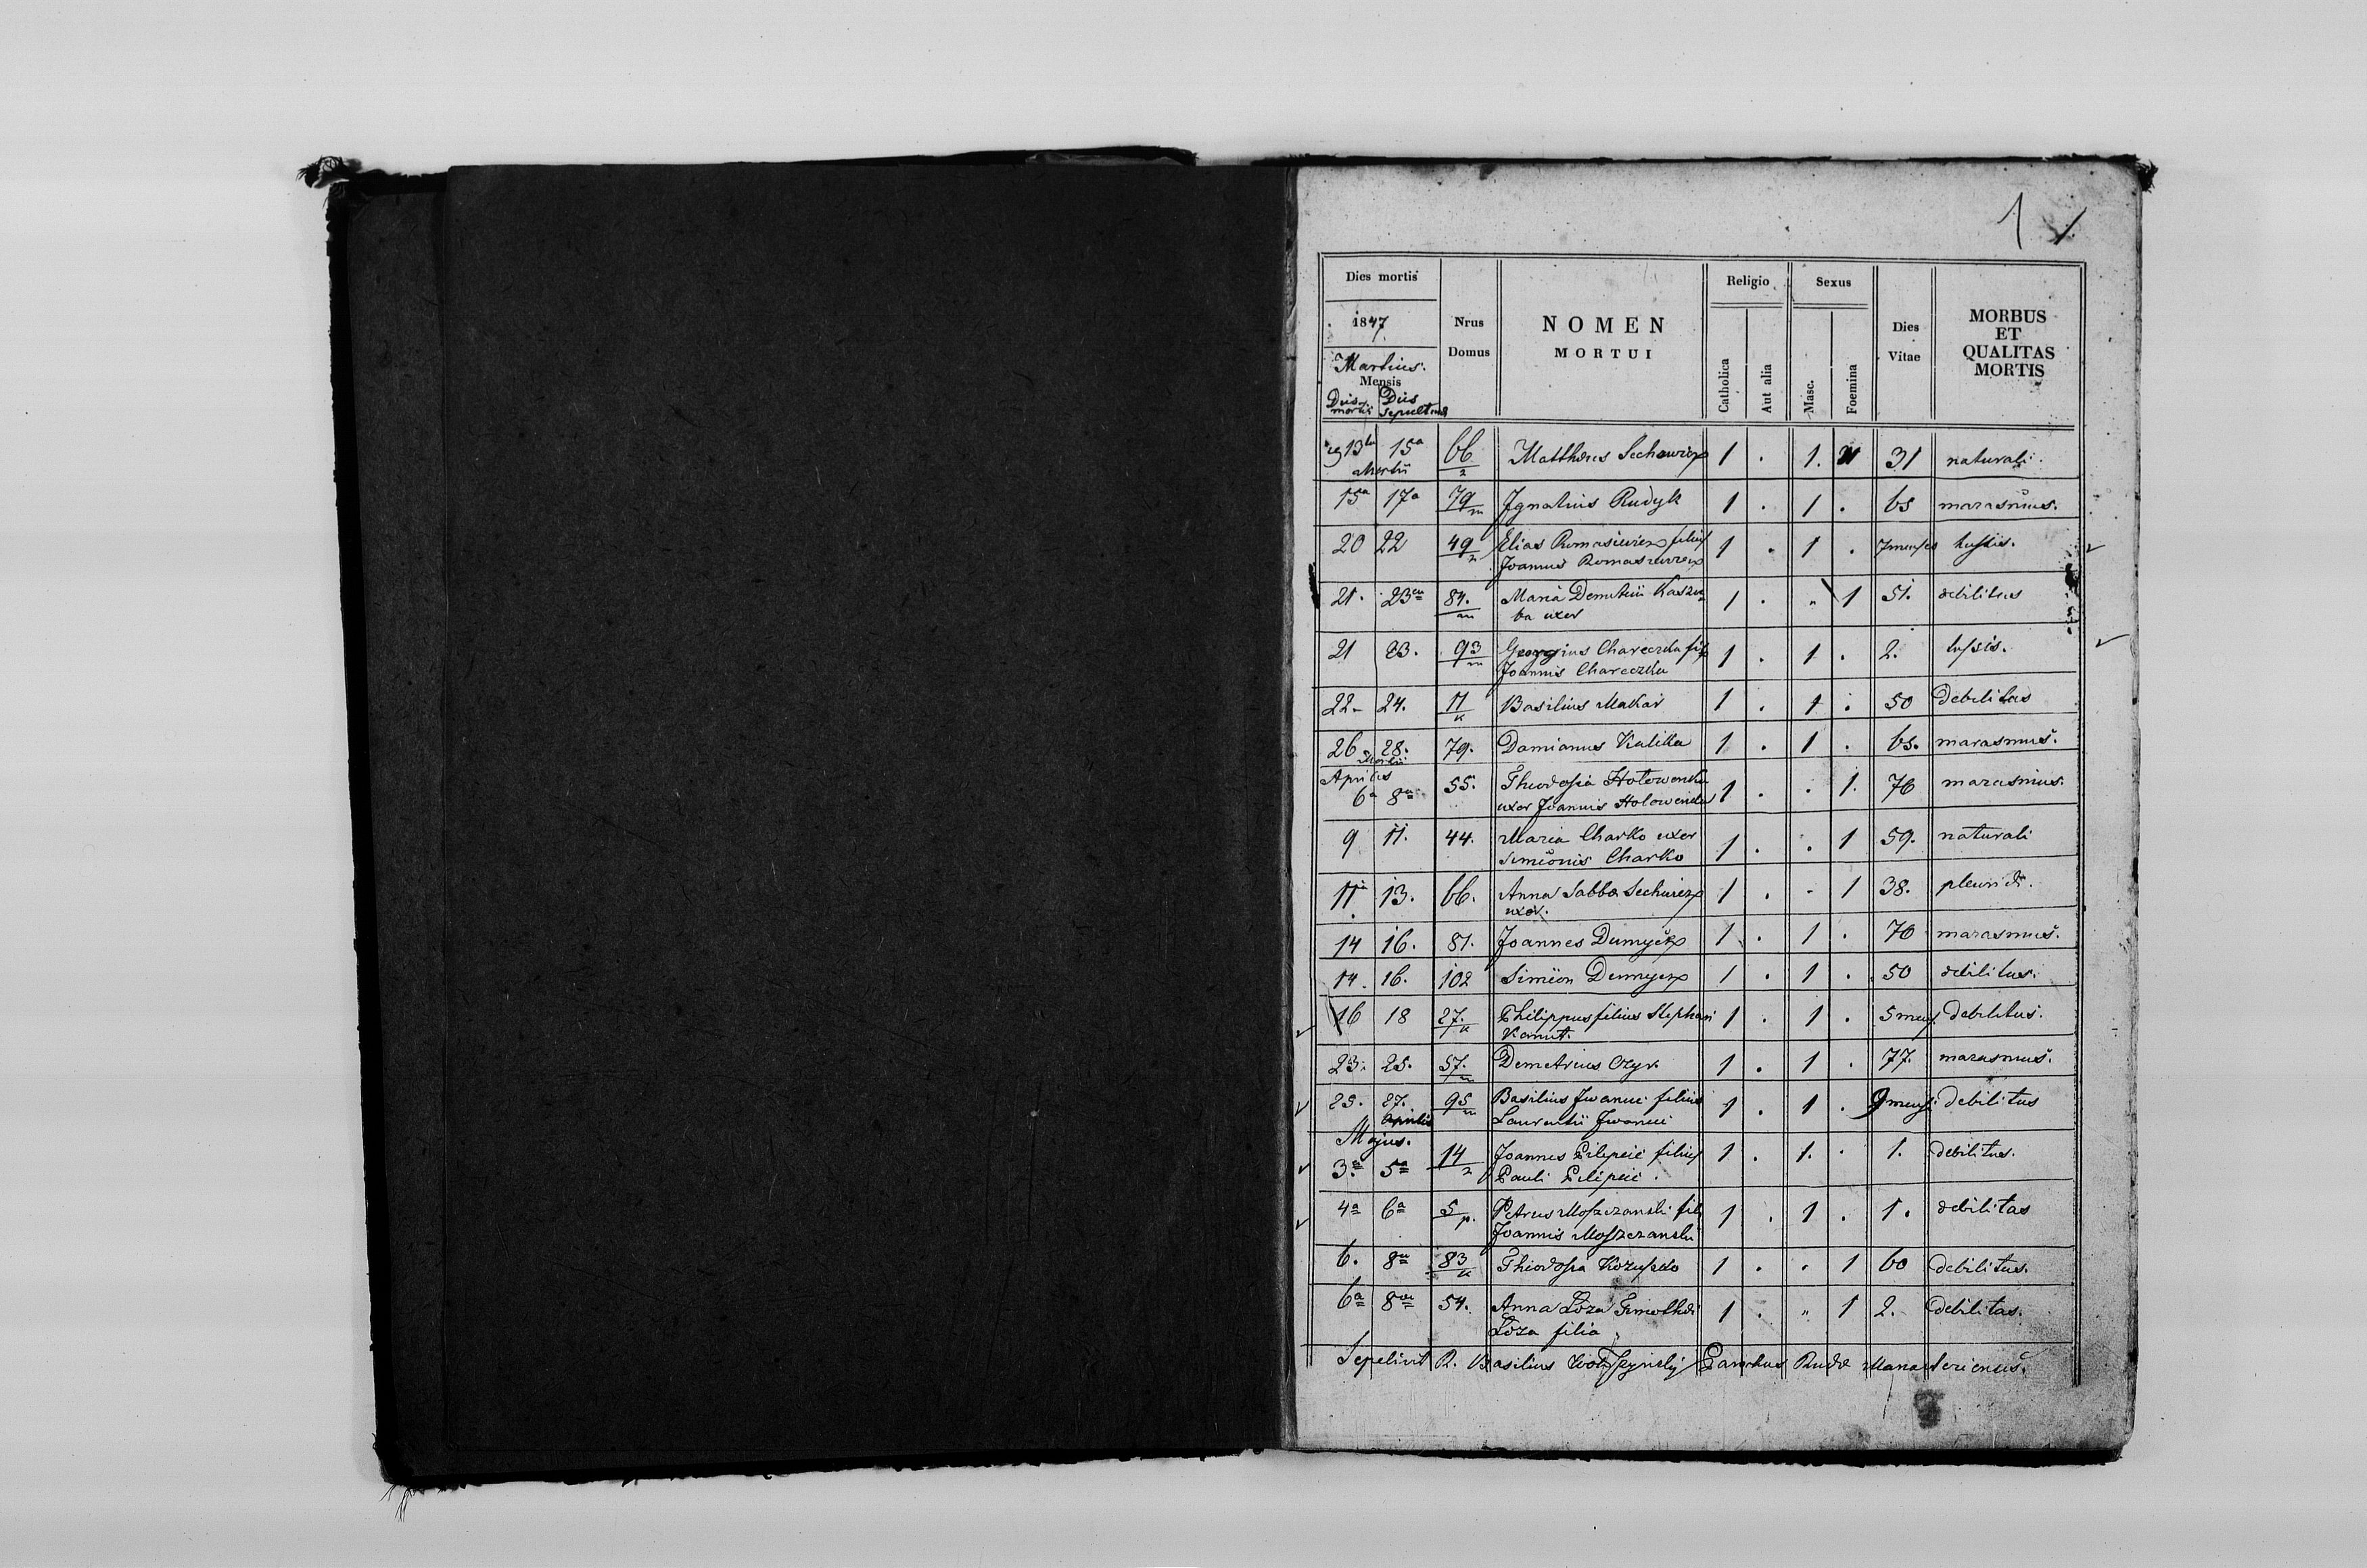 1 1
Dies mortis Nrus Domus NOMEN MORTUI Religio Sexus Dies Vitae MORBUS ET QUALITAS MORTIS
1847
Martius.
Mensis
Dies mortis Dies sepulturae Catholica Aut alia Masc. Foemina
13 15a 66 Matthaeus 1 . 1. 31 naturali.
Martii 2
15a 17a 79 Ignatius Rudyk 1 . 1 . 65 marasmus.
m
20 22 49 Elias filius 1 . 1 . 7 menses tussis.
2 Joannis
21. 23 84. Maria Demetrii 1 . " 1 51. debilitas
m uxor
21 23. 93 Georgius Chareczka 1 . 1 . 2. tussis.
m Joannis Chareczka
22 - 24. 11 Basilius Makar 1 . 1 . 50 Debilitas
k
26 28. 79. Damianus Kalika 1 . 1 . 65. marasmus.
Martii
Aprilis
6a 8a 55. Theodosia 1 . . 1. 76 marasmus.
uxor Joannis
9 11. 44. Maria Charko uxor 1 . . 1 59. naturali
Simeonis Charko
11 13. 66. Anna Sabba 1 . - 1 38.
uxor.
14 16. 81. Joannes Dumycz 1 . 1 . 70 marasmus.
14. 16. 102 Simeon Dumycz 1 . 1 . 50 debilitas.
16 18 27. Philippus filius Stephani 1 . 1 . 5 mens. debilitas.
k
23. 25. 57. Demetrius Czyr. 1 . 1 . 77. marasmus.
m
25. 27. 95 Basilius filius 1 . 1 . 9 mens. debilitas
Aprilis m Laurentii
Majus.
3a 5a 14 Joannes filius 1 . 1. . 1. debilitas.
2 Pauli
4a 6a 5 Petrus Moszczanski fil 1 . 1 . 1. debilitas
p. Joannis Moszczanski
6. 8a 83 Theodosia 1 . . 1 60 debilitas.
k
6a 8a 54. Anna Łoza Timothei 1 . " 1 2. debilitas.
Łoza filia
Sepelivit R. Basilius Parochus Rudae